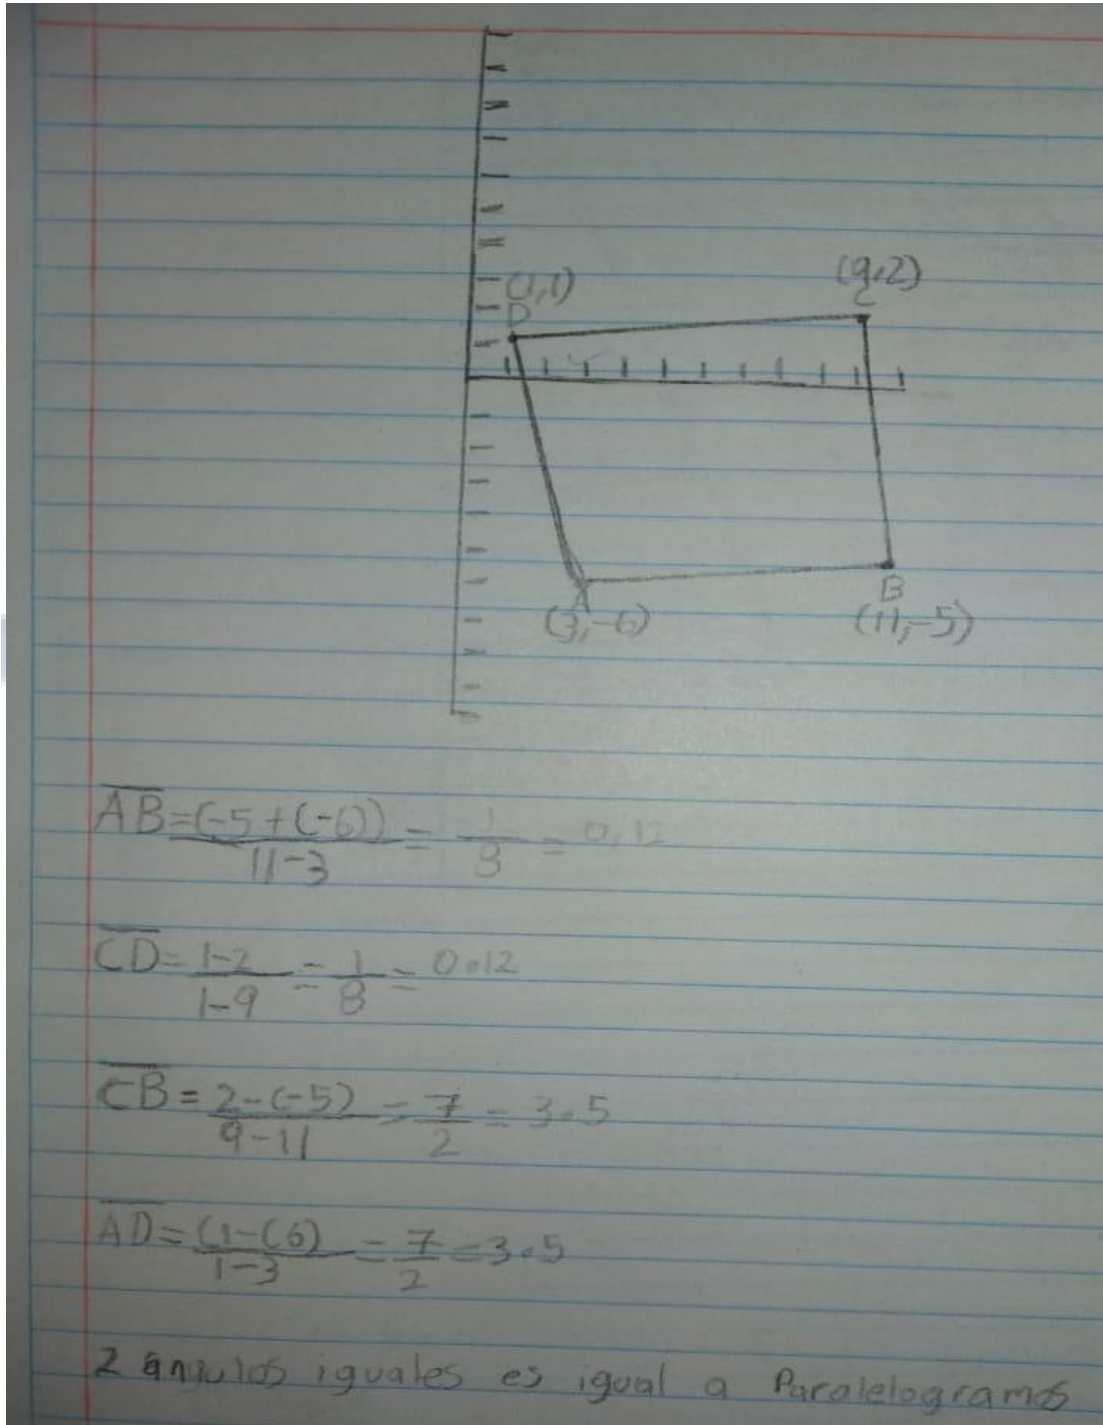 (1,1)
D
(9,2)
C
A
(3,-6)
B
(11,-5)
AB = (-5+(-6)) / 11-3 = 1/8 = 0.12
CD = 1-2 / 1-9 = 1/8 = 0.12
CB = 2-(-5) / 9-11 = 7/2 = 3.5
AD = (1-(6) / 1-3 = 7/2 = 3.5
2 angulos iguales es igual a Paralelogramos